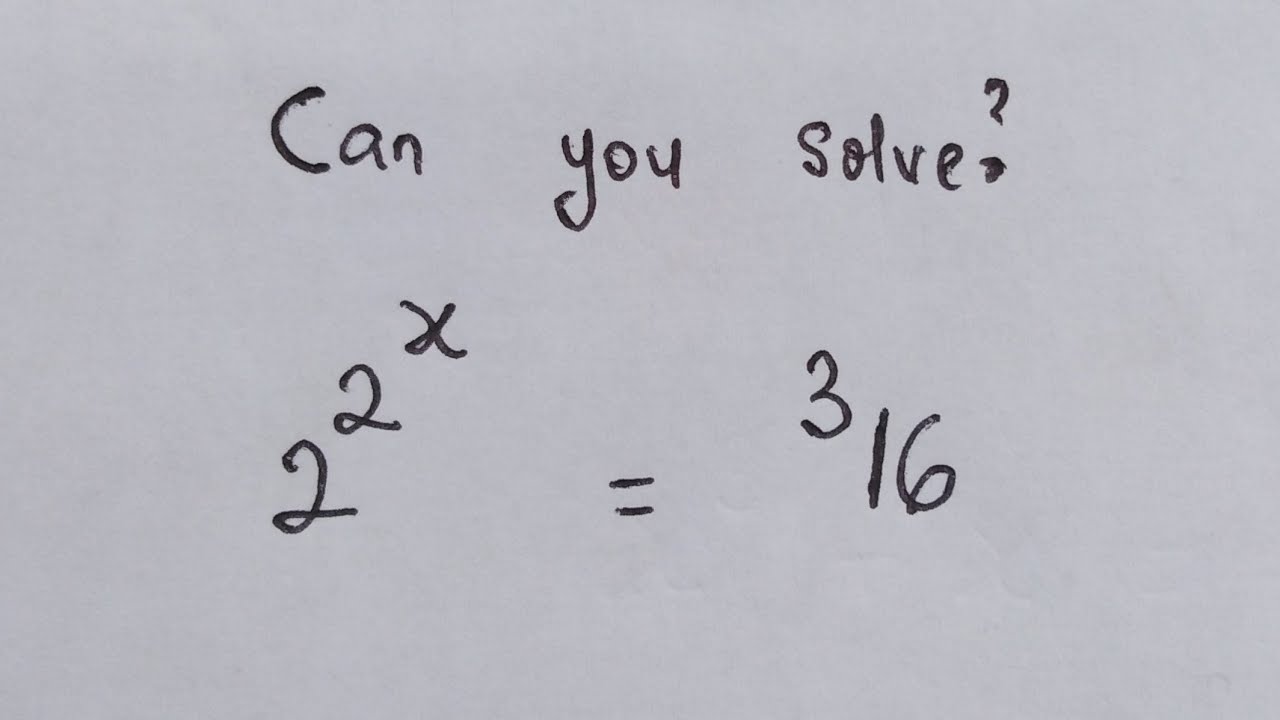 Can you solve?
2^2^x = ³16